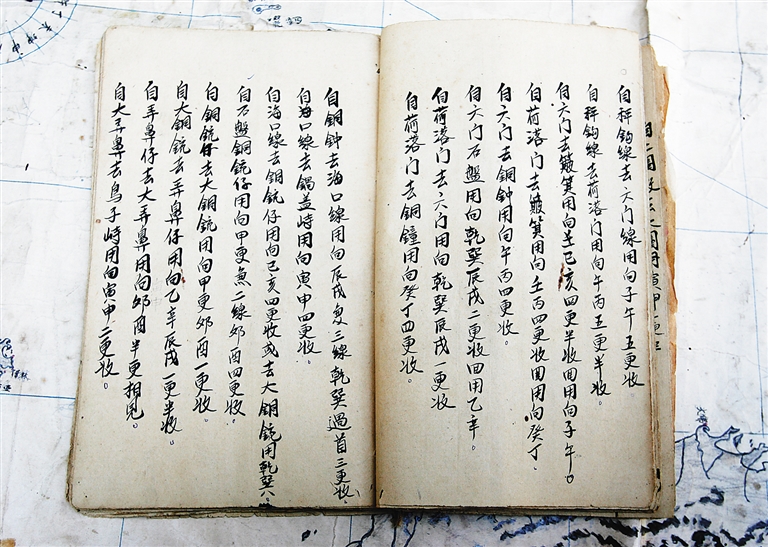 自秤鈎線去六门線用向子午五更收
自秤鈎線去荷落门用向午丙五更半收。
自六门去簸箕用向壬巳亥四更半收回用向子午。
自荷落门去簸箕用向壬丙四更收回用向癸丁。
自六门去銅钟用向午丙四更收。
自六门石盤用向乾巽辰戌二更收回用乙辛。
自荷落门去六门用向乾巽辰戌一更收
自荷落门去銅鐘用向癸丁四更收。
自銅钟去海口線用向辰戌兼三線乾巽過首三更收
自海口線去鍋盖峙用向寅申四更收。
自海口線去銅銃仔用向巳亥四更收或去大銅銃用乾巽六。
自石盤銅銃仔用向甲更兼二線夘酉四更收。
自銅銃仔去大銅銃用向甲更夘酉一更收
自大銅銃去弄鼻仔用向乙辛辰戌一更半收。
自弄鼻仔去大弄鼻用向夘酉半更相見。
自大弄鼻去鳥子峙用向寅申二更收。